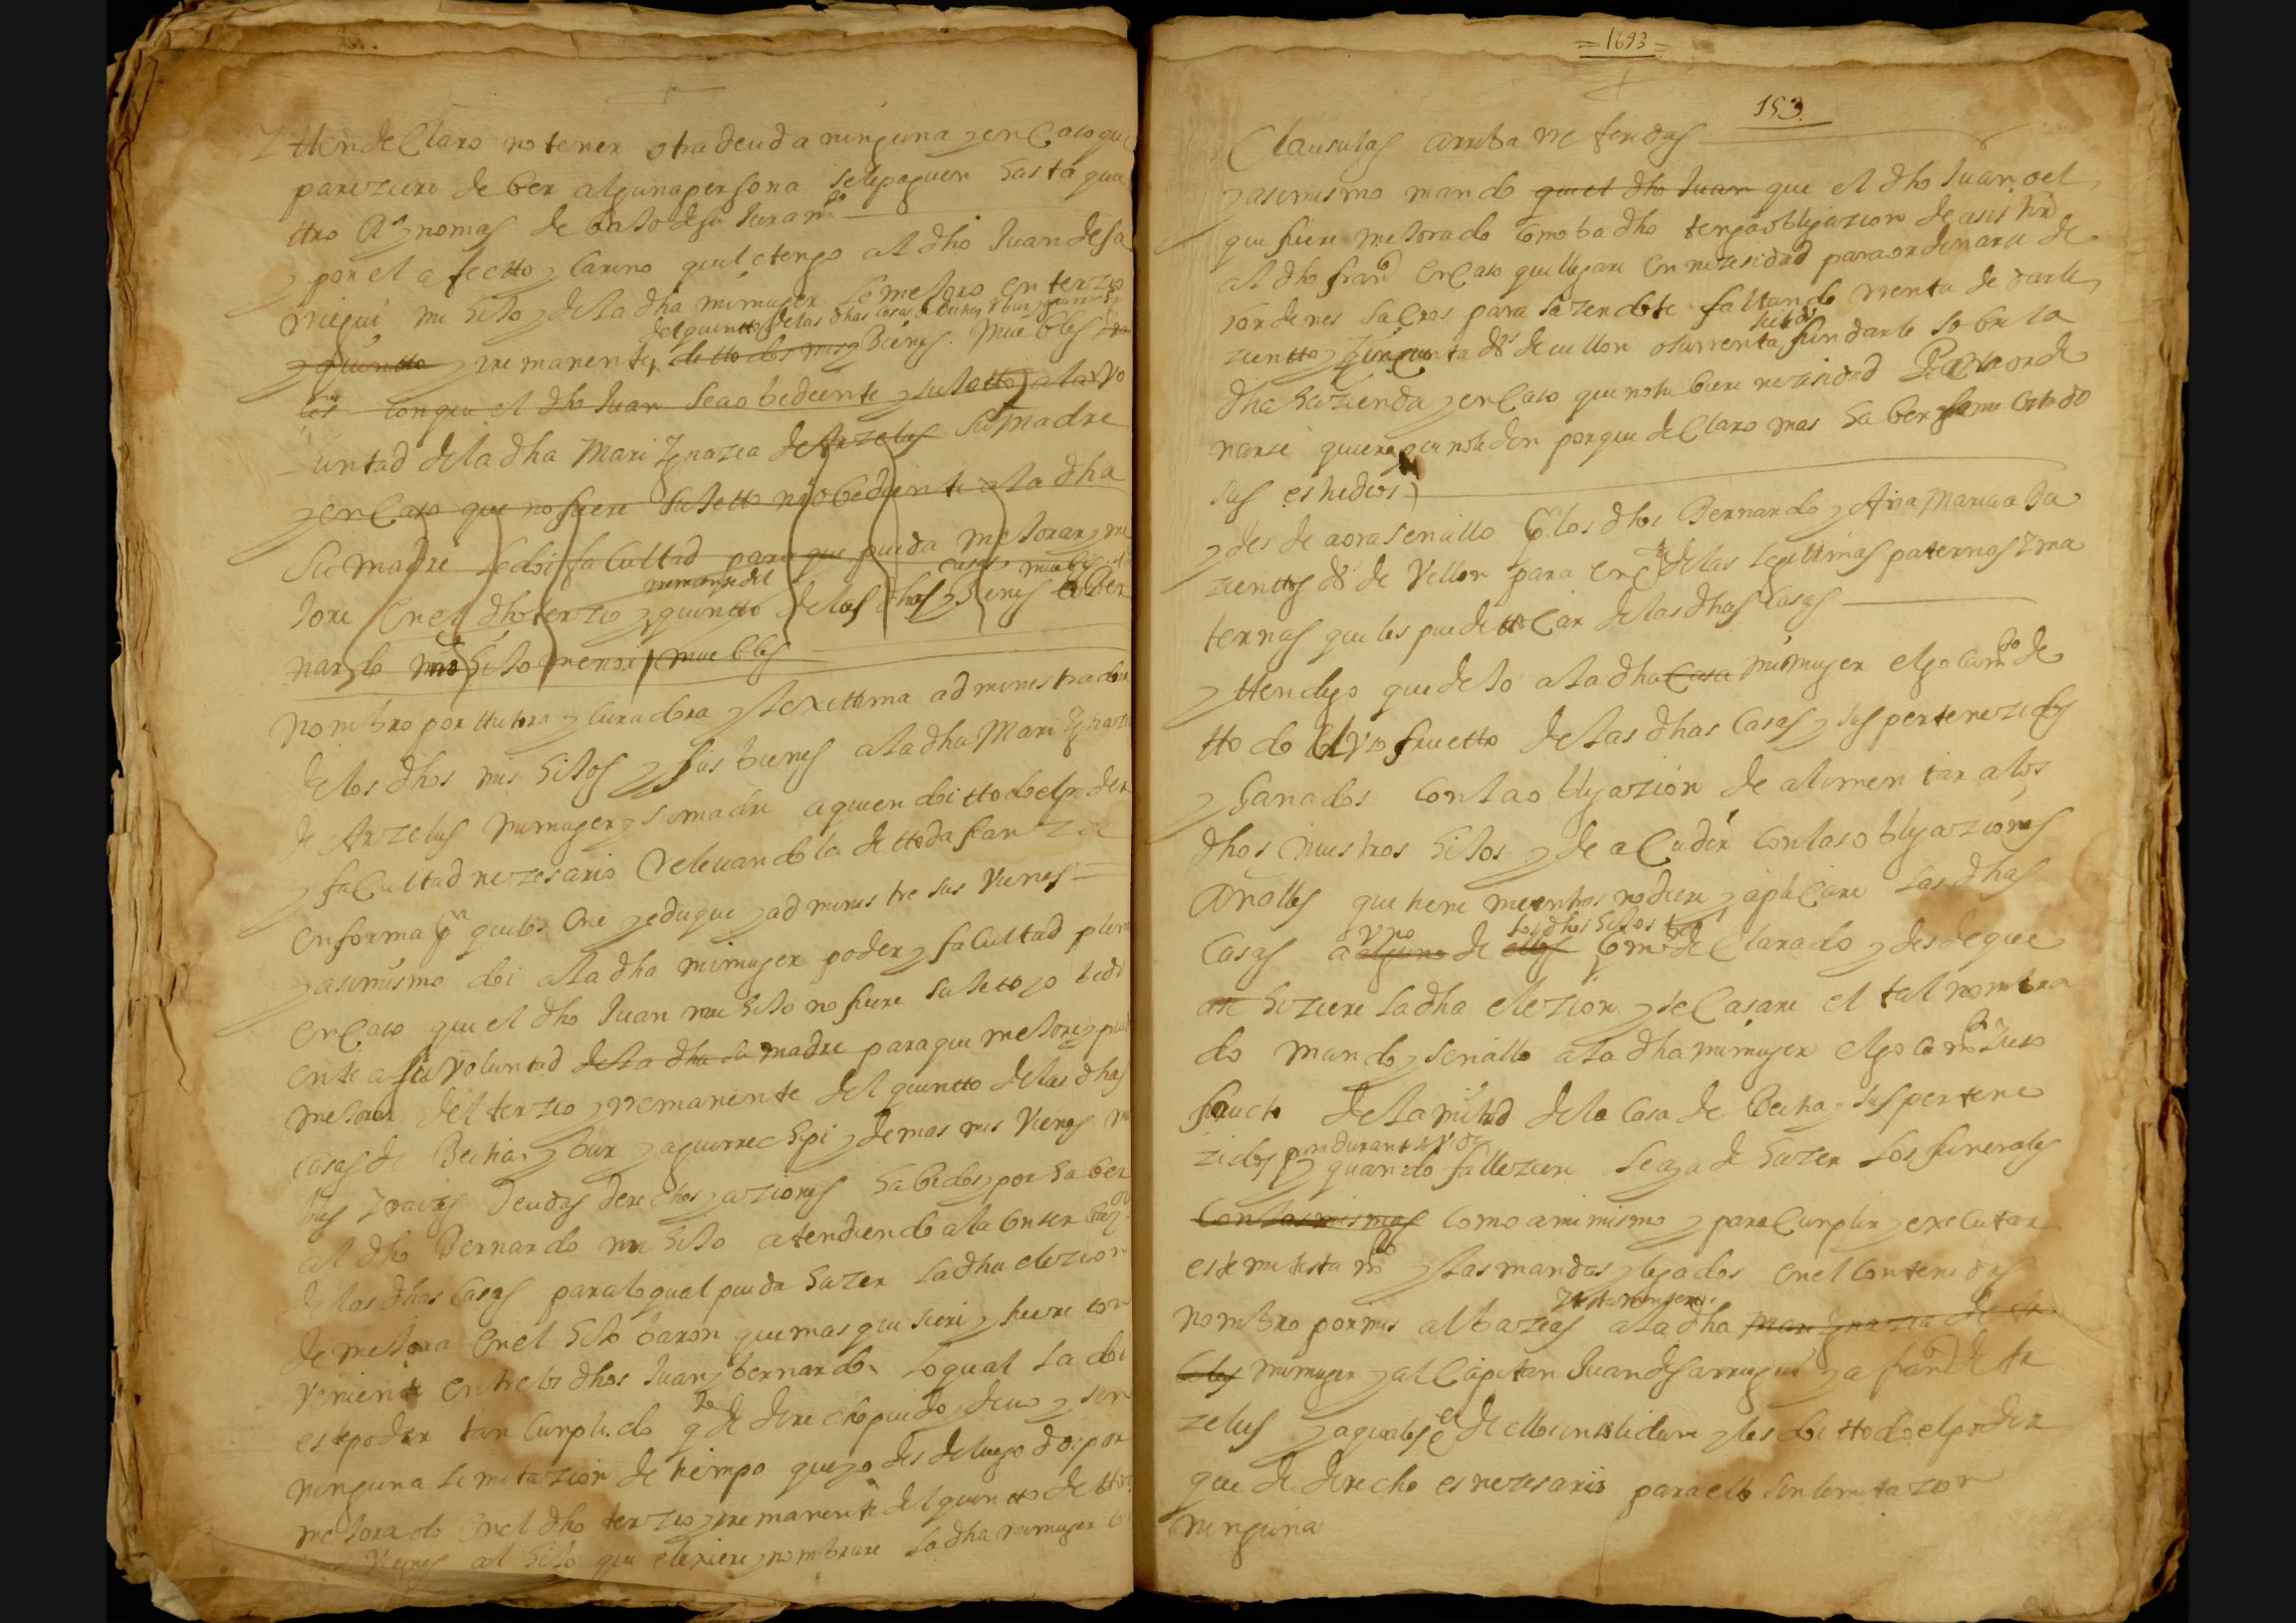 Ytten declaro no tener otra deuda ninguna y en caso que
pareziere deber alguna persona se le paguen hasta qua
ttro Rs y no mas debajo de su juramto
y por el afectto y carino que le tengo al dho Juan de Sa
rriegui mi hijo y de la dha mi muger le mejoro en terzio
del quintto de las dhas casas de
y quintto y remanente de ttodos mis Bienes muebles
les con que el dho Juan sea obediente y sujetto a la vo
luntad de la dha Mari Ygnazia de Arzelus su madre
y en caso que no fuere sujetto ni obediente a la dha
su madre le doi facultad para que pueda mejorar y me
remanente del casas muebles
jore en el dho terzio y quintto de las dhas y Bienes a Ber
nardo mi hijo menor muebles
nombro por ttutora y curadora y lexittima administradora
de los dhos mis hijos y sus bienes a la dha Mari Ygnazia
de Arzelus mi muger y su madre a quien doi ttodo el poder
y facultad nezesario relevandola de ttoda fianza
en forma pa que los crie y eduque y administre sus vienes
y asimismo doi a la dha mi muger poder y facultad plena
en caso que el dho Juan mi hijo no fuere sujetto y obedi
ente a su voluntad de la dha su madre para que mejore y pueda
mejorar del terzio y remanente del quintto de las dhas
casas de Beitia y Bur y aguirrechipi y demas mis vienes mue
bles y raizes deudas derechos y aziones habidos y por haber
al dho Bernardo mi hijo atendiendo a la conserbazon
de las dhas casas para lo qual pueda hazer la dha elezion
de mejora en el hijo baron que mas quisiere y fuere con
veniente entre los dhos Juan y bernardo lo qual la doi
este poder tan cumplido qto de derecho puedo y devo y sin
ninguna limitazion de tiempo que yo desde luego doi por
mejorado en el dho terzio y remanente del quintto de ttodos
mis vienes al hijo que elixiere y nombrare la dha mi muger
= 1693 =
153
Clausulas arriba referidas
y asimismo mando que el dho Juan que el dho Juan o el
que fuere mejorado como ba dho tenga obligazion de asistir
al dho franco en caso que llegare en nezesidad para ordenarse de
hordenes sacros para sazerdote faltando renta de darle
zientto y zinquenta ds de vellon o su renta fundarle sobre la
dha hazienda y en caso que no tubiere nezesidad Para orde
narse quiero que no le den porque declaro mas haberseme costado
sus estudios
y desde aora senallo pa los dhos Bernardo y Ana Maria a Du
zienttos ds de Vellon para en qta de las legittimas paternas y ma
ternas que les puede ttocar de las dhas casas
y tten digo que dejo a la dha casa mi muger el gozamto de
ttodo el vsofructto de las dhas casas y sus pertenezidos
y ganados con la obligazion de alimentar a los
dhos nuestros hijos y de acudir con las obligaziones
Añalles que tiene mientras no diere y aplicare las dhas
vno los dhos hijos
casas a alguno de ellos como declarado y desde que
ase hiziere la dha elezion y se casare el tal nombra
do mando y senallo a la dha mi muger el gozamto y uso
fructo de la mitad de la casa de Beitia y sus pertene
durante su vida
zidos y quando falleziere le aya de hazer los funerales
con las mismas como a mi mismo y para cumplir y executar
este mi testamto y las mandas y legados en el contenidas
y testamentarios
nombro por mis albazeas a la dha Mari Ygnazia de Ar
zelus mi muger y al Capitan Juan de Sarriegui y a franco de Ar
zelus y a qualesqe de ellos in solidum y les doi ttodo el poder
que de derecho es nezesario para ello sin limitazion
ninguna